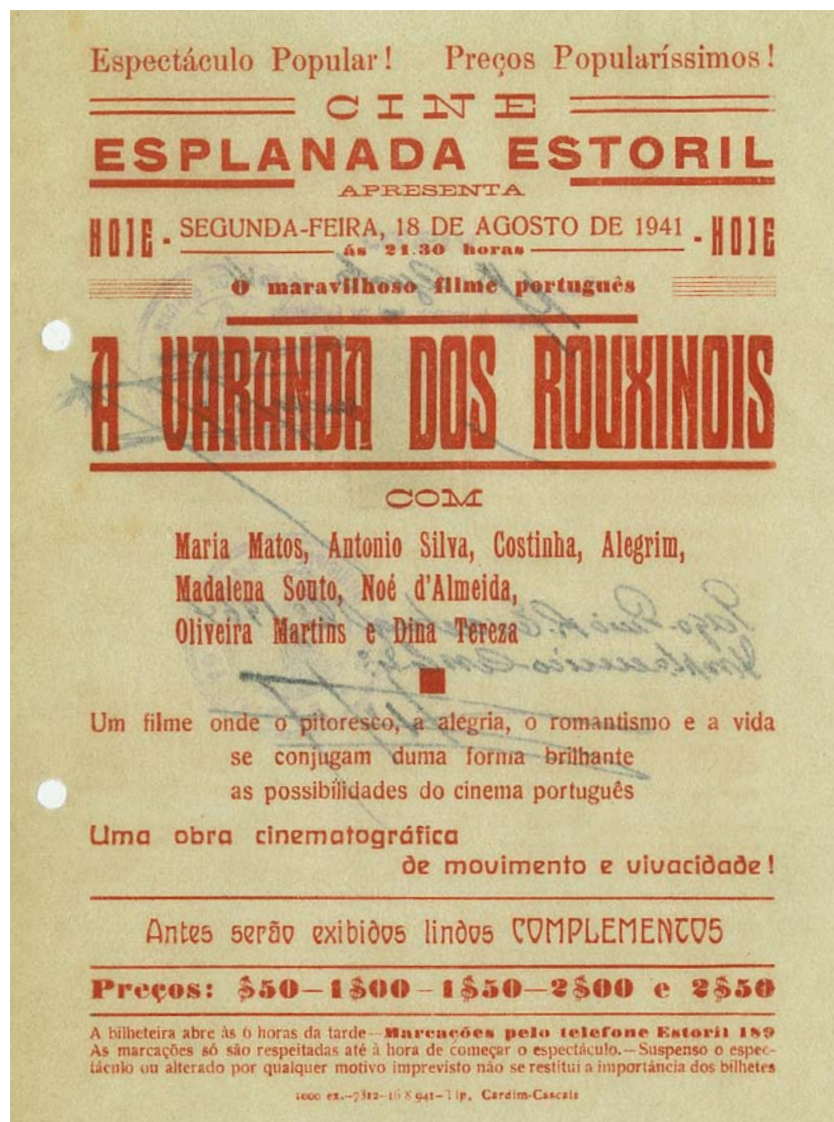 Espectáculo Popular! Preços Popularíssimos!
CINE
ESPLANADA ESTORIL
APRESENTA
HOJE - SEGUNDA-FEIRA, 18 DE AGOSTO DE 1941 - HOJE
ás 21.30 horas
O maravilhoso filme português
A VARANDA DOS ROUXINOIS
COM
Maria Matos, Antonio Silva, Costinha, Alegrim,
Madalena Souto, Noé d'Almeida,
Oliveira Martins e Dina Tereza
Um filme onde o pitoresco, a alegria, o romantismo e a vida
se conjugam duma forma brilhante
as possibilidades do cinema português
Uma obra cinematográfica
de movimento e vivacidade!
Antes serão exibidos lindos COMPLEMENTOS
Preços: $50—1$00—1$50—2$00 e 2$50
A bilheteira abre às 6 horas da tarde—Marcações pelo telefone Estoril 189
As marcações só são respeitadas até à hora de começar o espectáculo.—Suspenso o espec-
táculo ou alterado por qualquer motivo imprevisto não se restitui a importância dos bilhetes
1000 ex.—7312—16 8 941—Tip. Cardim-Cascais